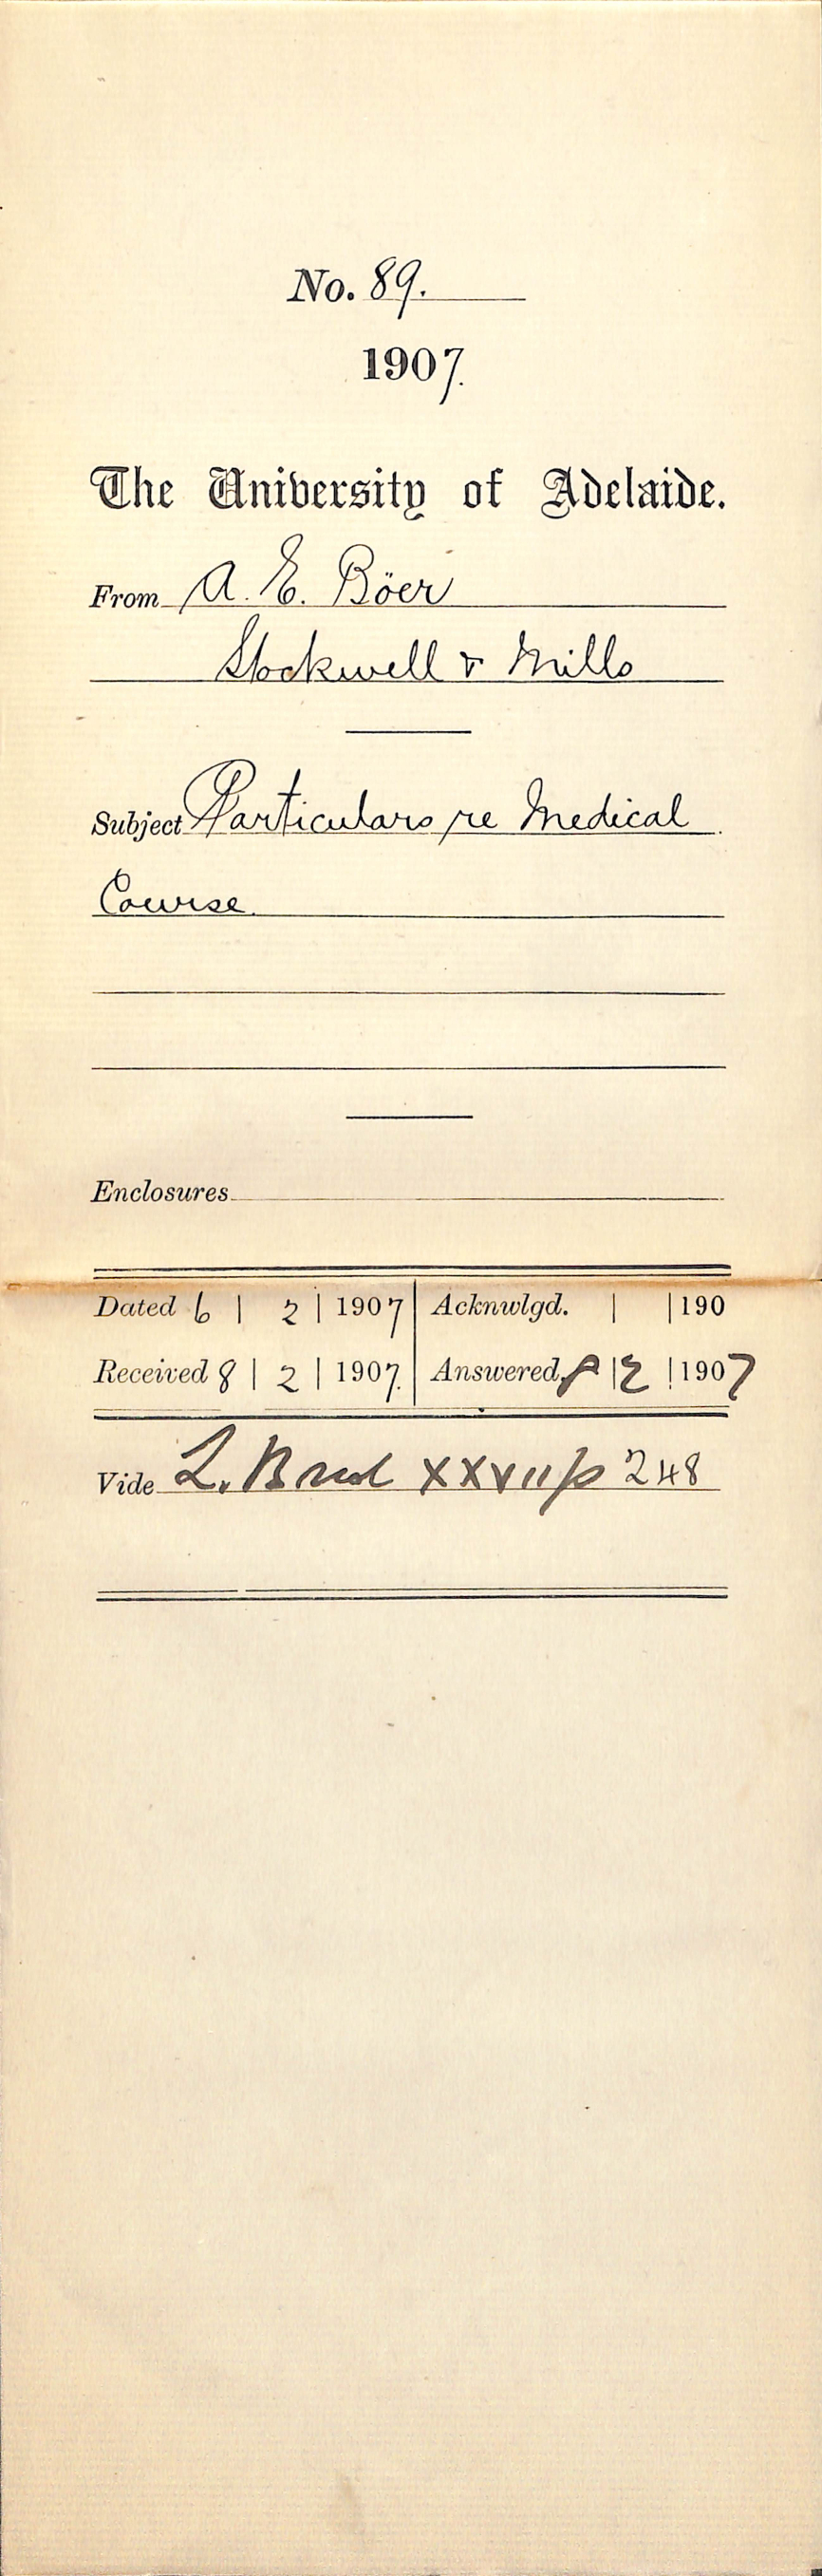 No. 89.
1907.
The University of Adelaide.
From A. E. Böer
Stockwell & Mills
Subject Particulars re Medical
Course.
Enclosures
Dated 6 | 2 | 1907 | Acknwlgd. | | 190
Received 8 | 2 | 1907. | Answered 8 | 2 | 1907
Vide L. Book XXVII p 248